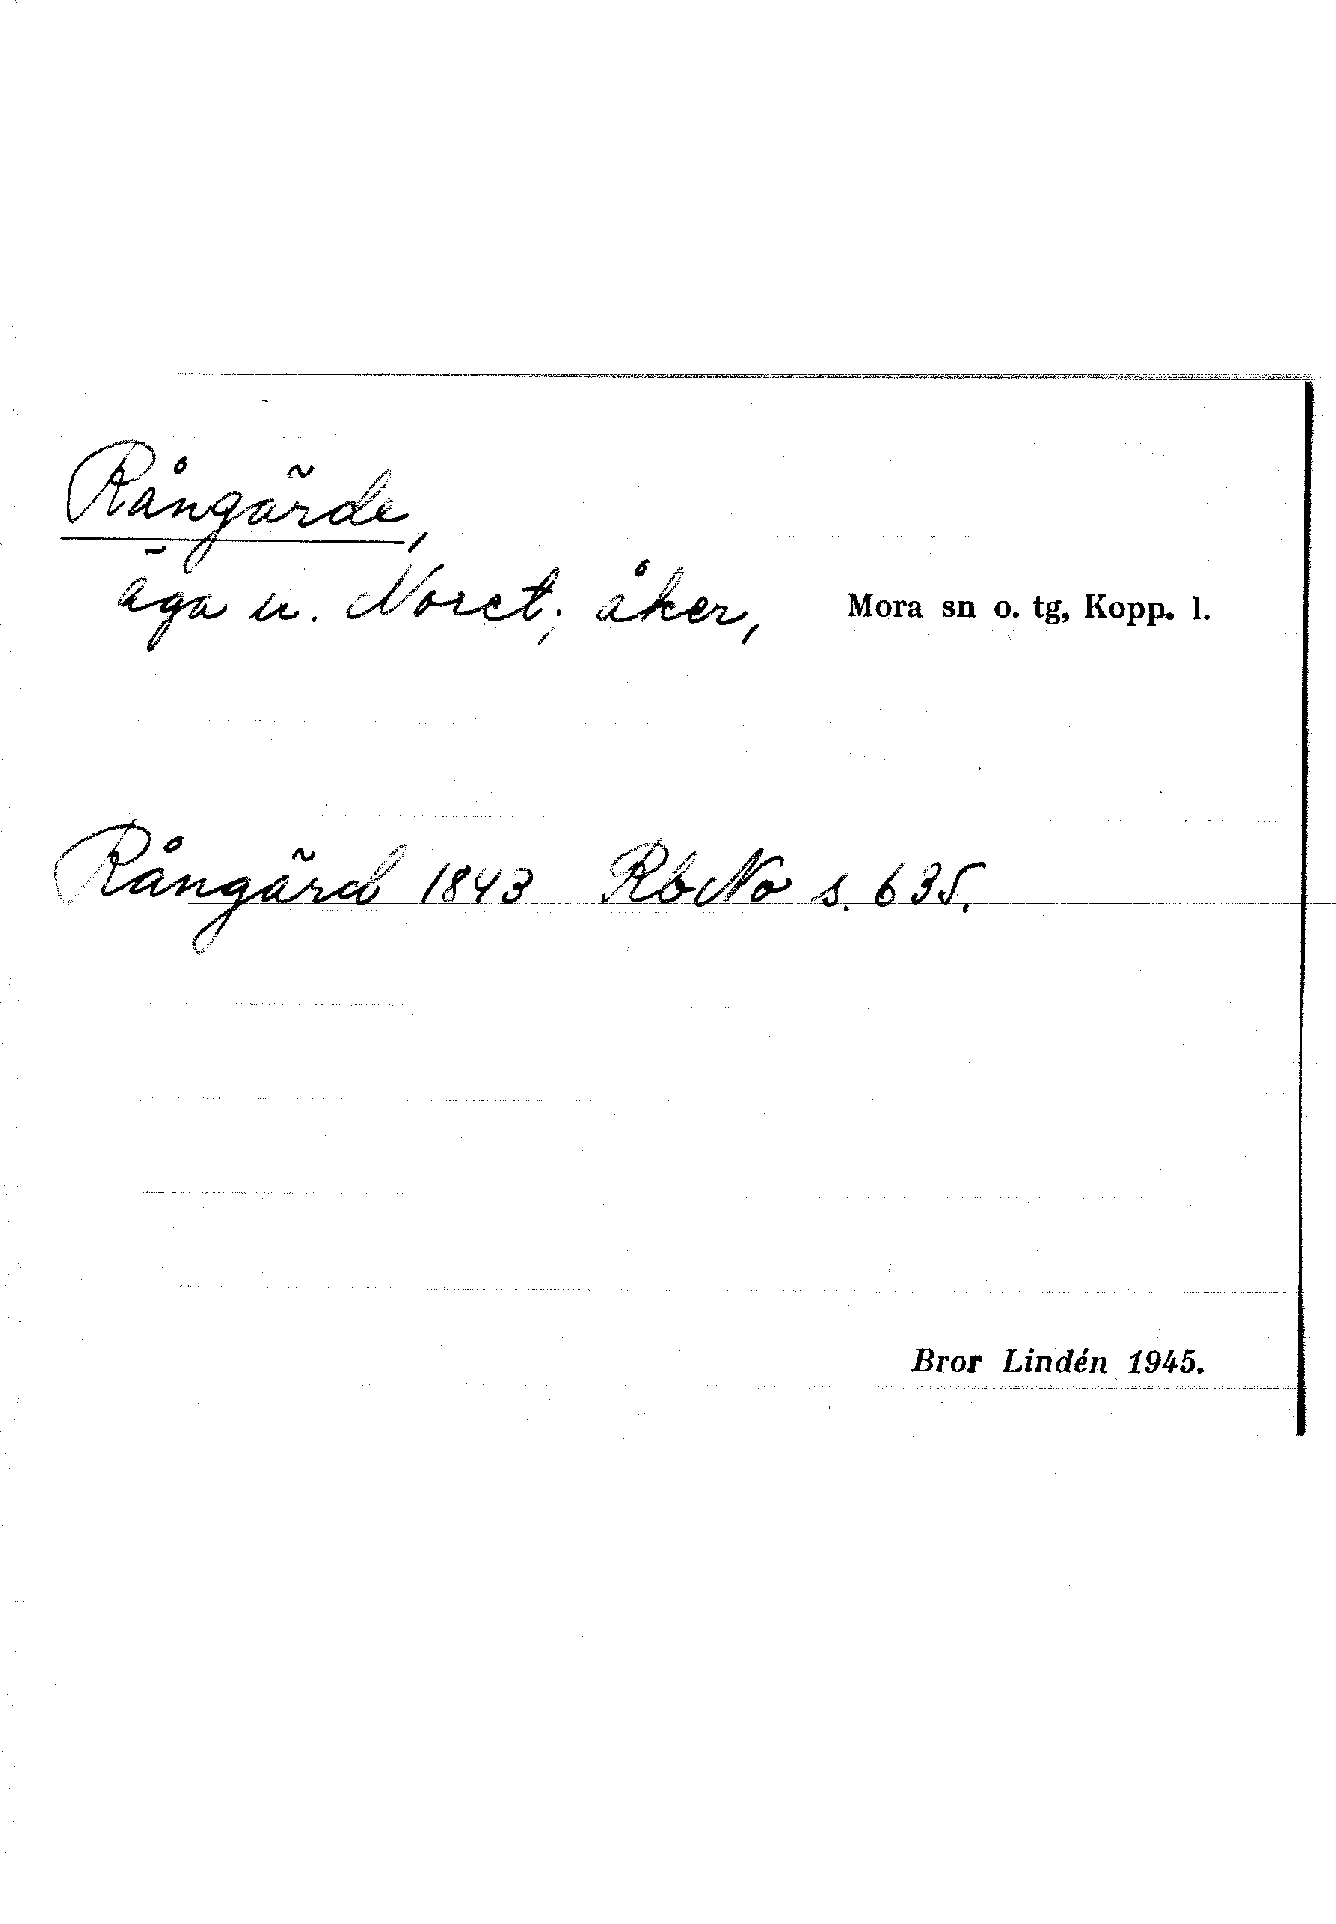 Rångärde,
äga u. Noret; åker, Mora sn o. tg, Kopp. l.
Rångärd 1843 RbNo s. 635.
Bror Lindén 1945.